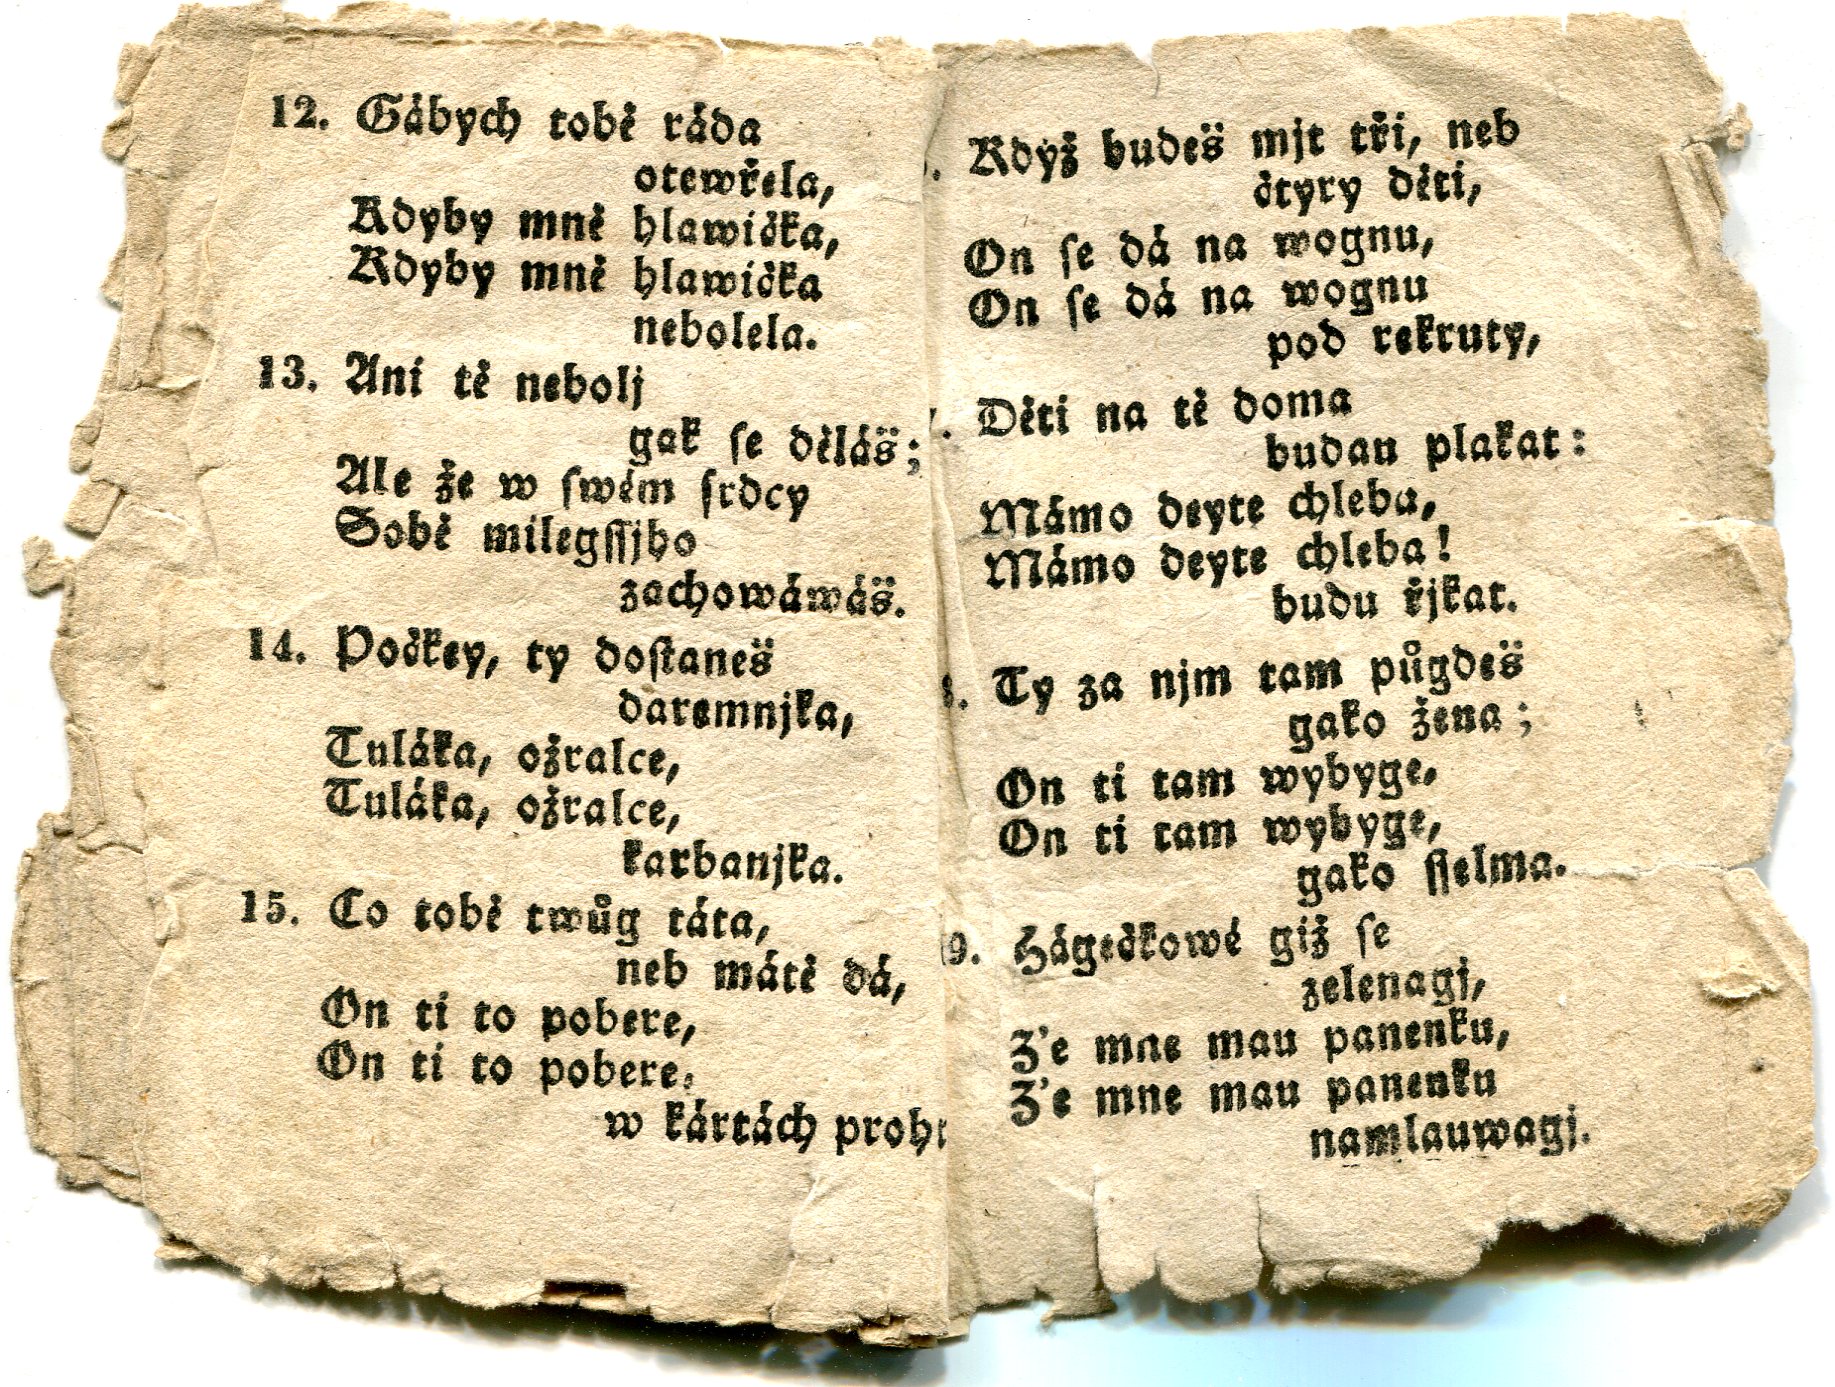 12. Gábych tobě ráda
otewřela,
Kdyby mně hlawička,
Kdyby mně hlawička
nebolela.
13. Ani tě nebolj
gak se děláš;
Ale že w swém srdcy
Sobě milegſſjho
zachowáwáš.
14. Počkey, ty doſtaneš
daremnjka,
Tuláka, ožralce,
Tuláka, ožralce,
karbanjka.
15. Co tobě twůg táta,
neb mátě dá,
On ti to pobere,
On ti to pobere,
w kártách
Když budeš mjt tři, neb
čtyry děti,
On ſe dá na wognu,
On ſe dá na wognu
pod rekruty,
Děti na tě doma
budau plakat:
Mámo deyte chleba,
Mámo deyte chleba!
budu řjkat.
Ty za njm tam půgdeš
gako žena;
On ti tam wybyge,
On ti tam wybyge,
gako ſſelma.
19. Hágečkowé giž ſe
zelenagj,
Z'e mne mau panenku,
Z'e mne mau panenku
namlauwagj.